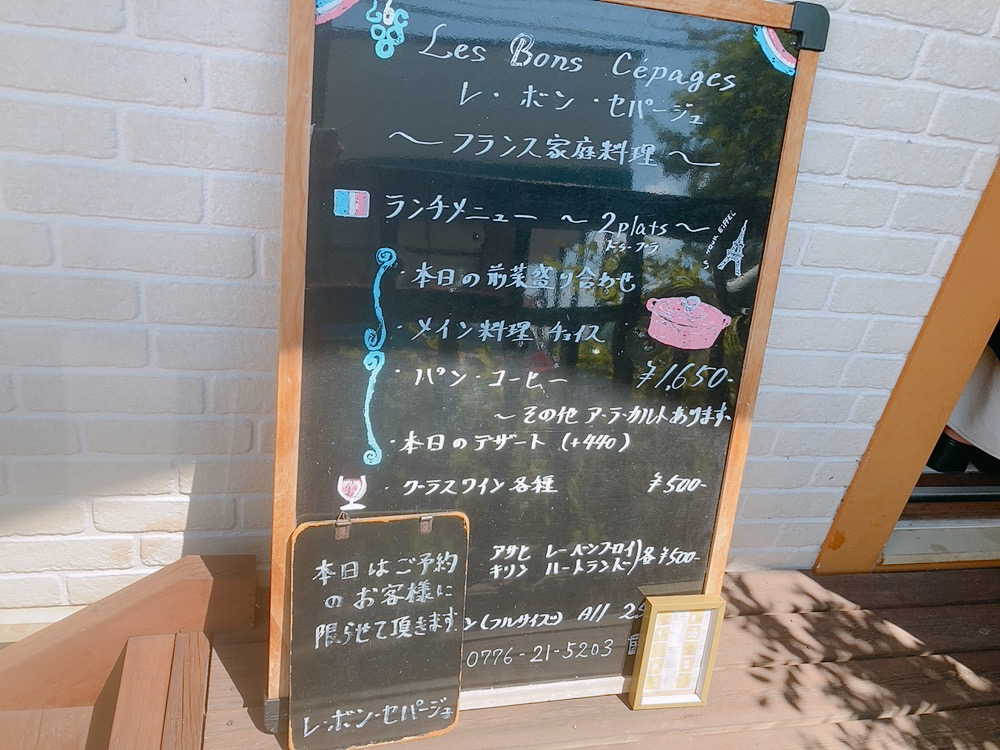 Les Bons Cépages
レ・ボン・セパージュ
〜フランス家庭料理〜
ランチメニュー 〜2plats〜
ドゥープラ
TOUR EIFFEL
・本日の前菜盛り合わせ
・メイン料理 チョイス
・パン・コーヒー ¥1,650-
〜その他 ア・ラ・カルトあります
・本日のデザート (+440)
・グラスワイン各種 ¥500-
アサヒ レーベンブロイ
キリン ハートランド 各¥500-
ン(フルサイズ) All
0776-21-5203
本日はご予約
のお客様に
限らせて頂きます
レ・ボン・セパージュ